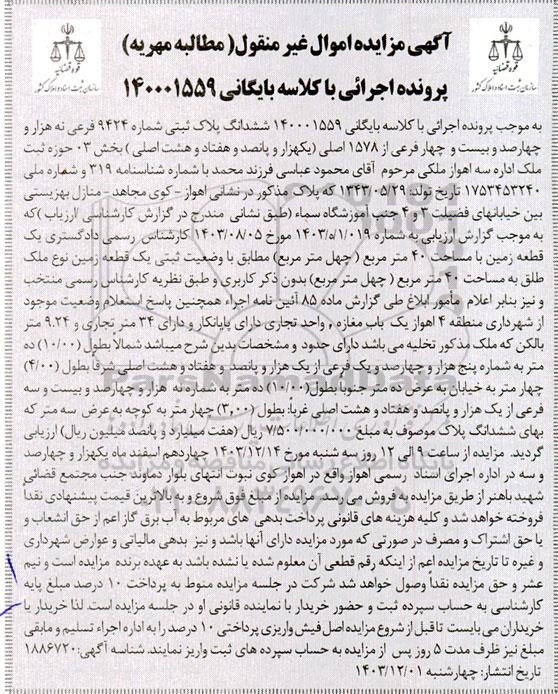 آگهی مزایده اموال غیر منقول( مطالبه مهریه)
پرونده اجرائی با کلاسه بایگانی ۱۴۰۰۰۱۵۵۹
قوه قضائیه
سازمان ثبت اسناد و املاک کشور
قوه قضائیه
سازمان ثبت اسناد و املاک کشور
به موجب پرونده اجرائی با کلاسه بایگانی ۱۴۰۰۰۱۵۵۹ ششدانگ پلاک ثبتی شماره ۹۴۲۴ فرعی نه هزار و
چهارصد و بیست و چهار فرعی از ۱۵۷۸ اصلی (یکهزار و پانصد و هفتاد و هشت اصلی ) بخش ۰۳ حوزه ثبت
ملک اداره سه اهواز ملکی مرحوم آقای محمود عباسی فرزند محمد با شماره شناسنامه ۳۱۹ و شماره ملی
۱۷۵۳۴۵۳۲۴۰ تاریخ تولد: ۱۳۴۳/۰۵/۲۹ که پلاک مذکور در نشانی اهواز - کوی مجاهد -منازل بهزیستی
بین خیابانهای فضیلت ۳ و ۴ جنب آموزشگاه سماء (طبق نشانی مندرج در گزارش کارشناسی /ارزیاب )که
به موجب گزارش ارزیابی به شماره ۱۴۰۳/۵/۱/۰۱۹ مورخ ۱۴۰۳/۰۸/۰۵ کارشناس رسمی دادگستری یک
قطعه زمین با مساحت ۴۰ متر مربع ( چهل متر مربع) مطابق با وضعیت ثبتی یک قطعه زمین نوع ملک
طلق به مساحت ۴۰ متر مربع ( چهل متر مربع) بدون ذکر کاربری و طبق نظریه کارشناس رسمی منتخب
و نیز بنابر اعلام مأمور ابلاغ طی گزارش ماده ۸۵ آئین نامه اجراء همچنین پاسخ استعلام وضعیت موجود
از شهرداری منطقه ۴ اهواز یک باب مغازه , واحد تجاری دارای پایانکار و دارای ۳۴ متر تجاری و ۹.۲۴ متر
بالکن که ملک مذکور تخلیه می باشد دارای حدود و مشخصات بدین شرح میباشد شمالا بطول (۱۰/۰۰) ده
متر به شماره پنج هزار و چهارصد و یک فرعی از یک هزار و پانصد و هفتاد و هشت اصلی شرقا بطول (۴/۰۰)
چهار متر به خیابان به عرض ده متر جنوبا بطول(۱۰/۰۰) ده متر به شماره نه هزار و چهارصد و بیست و سه
فرعی از یک هزار و پانصد و هفتاد و هشت اصلی غرباً: بطول (۳,۰۰) چهار متر به کوچه به عرض سه متر که
بهای ششدانگ پلاک موصوف به مبلغ ۷/۵۰۰/۰۰۰/۰۰۰ ریال (هفت میلیارد و پانصد میلیون ریال) ارزیابی
گردید. مزایده از ساعت ۹ الی ۱۲ روز سه شنبه مورخ ۱۴۰۳/۱۲/۱۴ چهاردهم اسفند ماه یکهزار و چهارصد
و سه در اداره اجرای اسناد رسمی اهواز واقع در اهواز کوی نبوت انتهای بلوار دماوند جنب مجتمع قضائی
شهید باهنر از طریق مزایده به فروش می رسد. مزایده از مبلغ فوق شروع و به بالاترین قیمت پیشنهادی نقداً
فروخته خواهد شد و کلیه هزینه های قانونی پرداخت بدهی های مربوط به آب برق گاز اعم از حق انشعاب و
یا حق اشتراک و مصرف در صورتی که مورد مزایده دارای آنها باشد و نیز بدهی مالیاتی و عوارض شهرداری
و غیره تا تاریخ مزایده اعم از اینکه رقم قطعی آن معلوم شده یا نشده باشد به عهده برنده مزایده است و نیم
عشر و حق مزایده نقداً وصول خواهد شد شرکت در جلسه مزایده منوط به پرداخت ۱۰ درصد مبلغ پایه
کارشناسی به حساب سپرده ثبت و حضور خریدار یا نماینده قانونی او در جلسه مزایده است. لذا خریدار یا
خریداران می بایست تا قبل از شروع مزایده اصل فیش واریزی پرداختی ۱۰ درصد را به اداره اجراء تسلیم و مابقی
مبلغ نیز ظرف مدت ۵ روز پس از مزایده به حساب سپرده های ثبت واریز نمایند. شناسه آگهی: ۱۸۸۶۷۲۰
تاریخ انتشار: چهارشنبه ۱۴۰۳/۱۲/۰۱